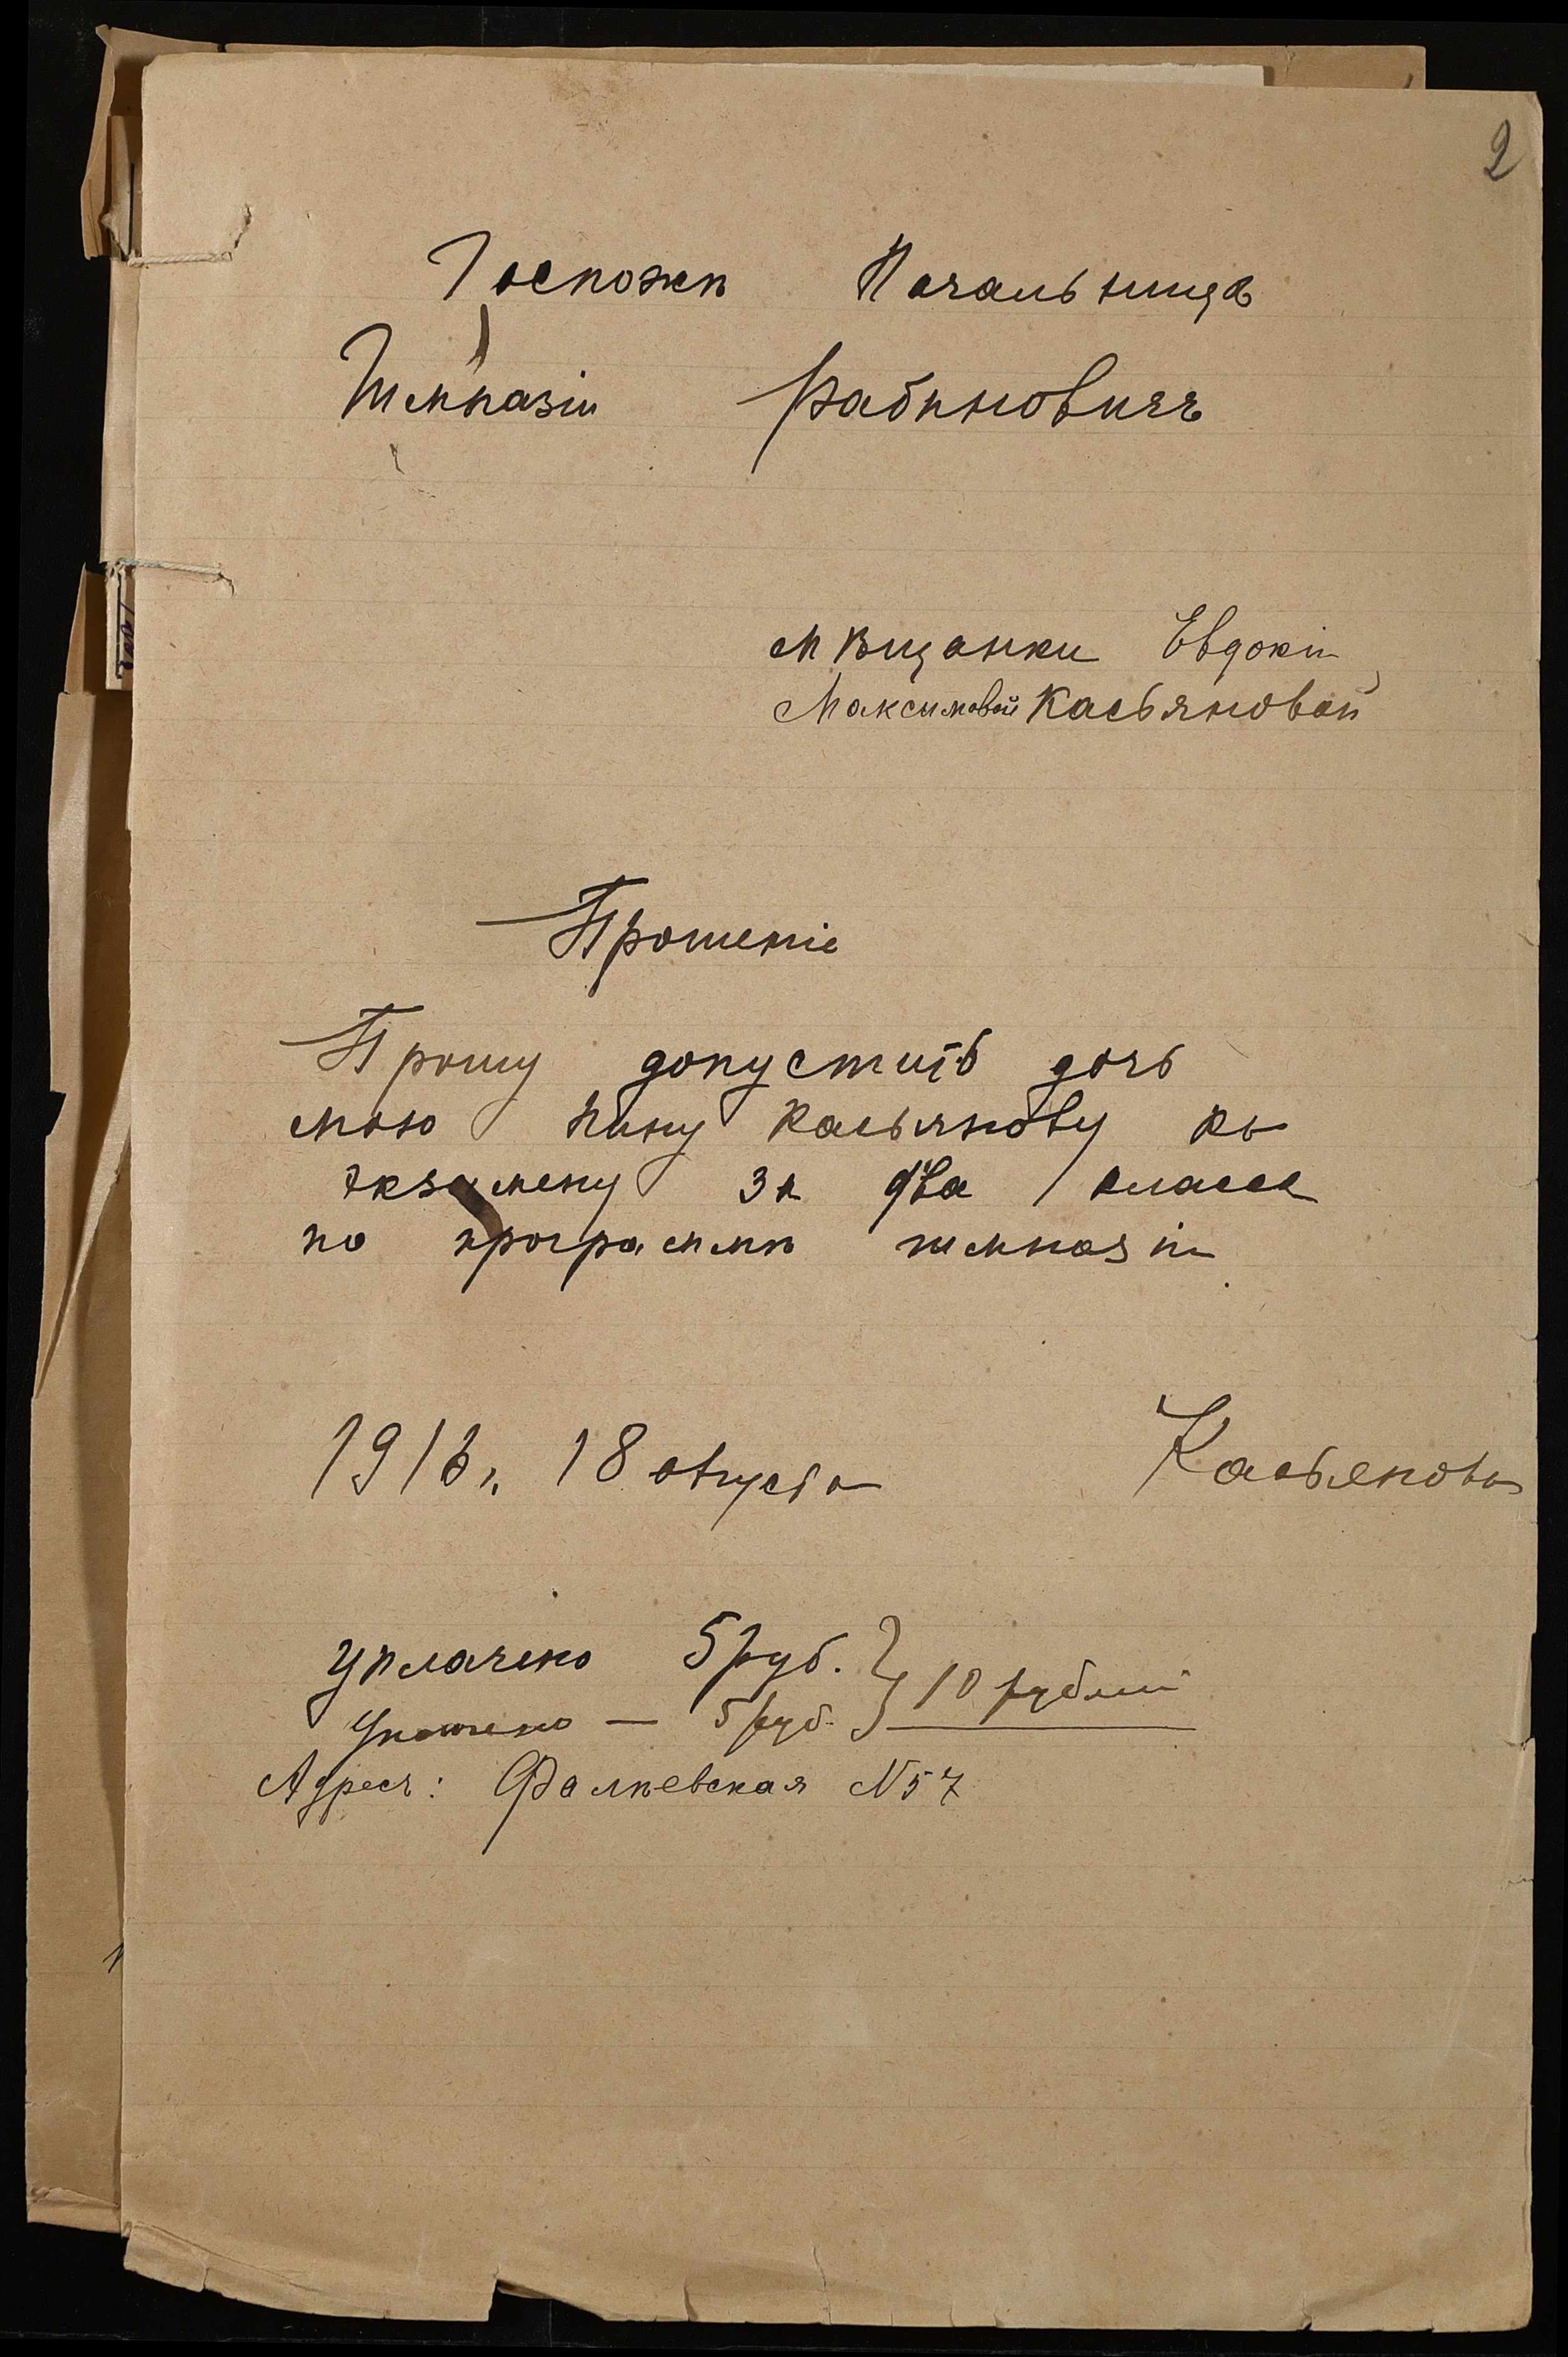 2
Госпожѣ Начальницѣ
Гимназіи Рабиновичъ
Мѣщанки Евдокіи
Максимовой Касьяновой
Прошеніе
Прошу допустить дочь
мою Нину Касьянову къ
экзамену за два класса
по программѣ гимназіи
1916 г. 18 августа Касьянова
Уплачено 5 руб. } 10 рублей
Уплачено — 5 руб.
Адресъ: Фалѣевская № 57